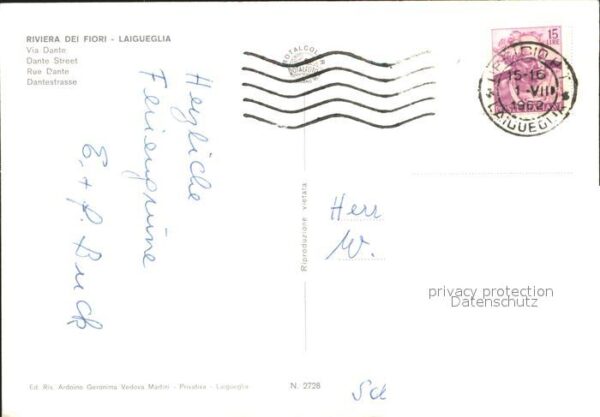 RIVIERA DEI FIORI - LAIGUEGLIA
Via Dante
Dante Street
Rue Dante
Dantestrasse
Herzliche
Feriengrüsse
E. + P. Buck
TOTALCOLOR
Riproduzione vietata
15
LIRE
15-16
1-VIII
1962
LAIGUEGLIA
Herr
W.
privacy protection
Datenschutz
Ed. Ris. Ardoino Geronima Vedova Martini - Privativa - Laigueglia
N. 2728
Sd